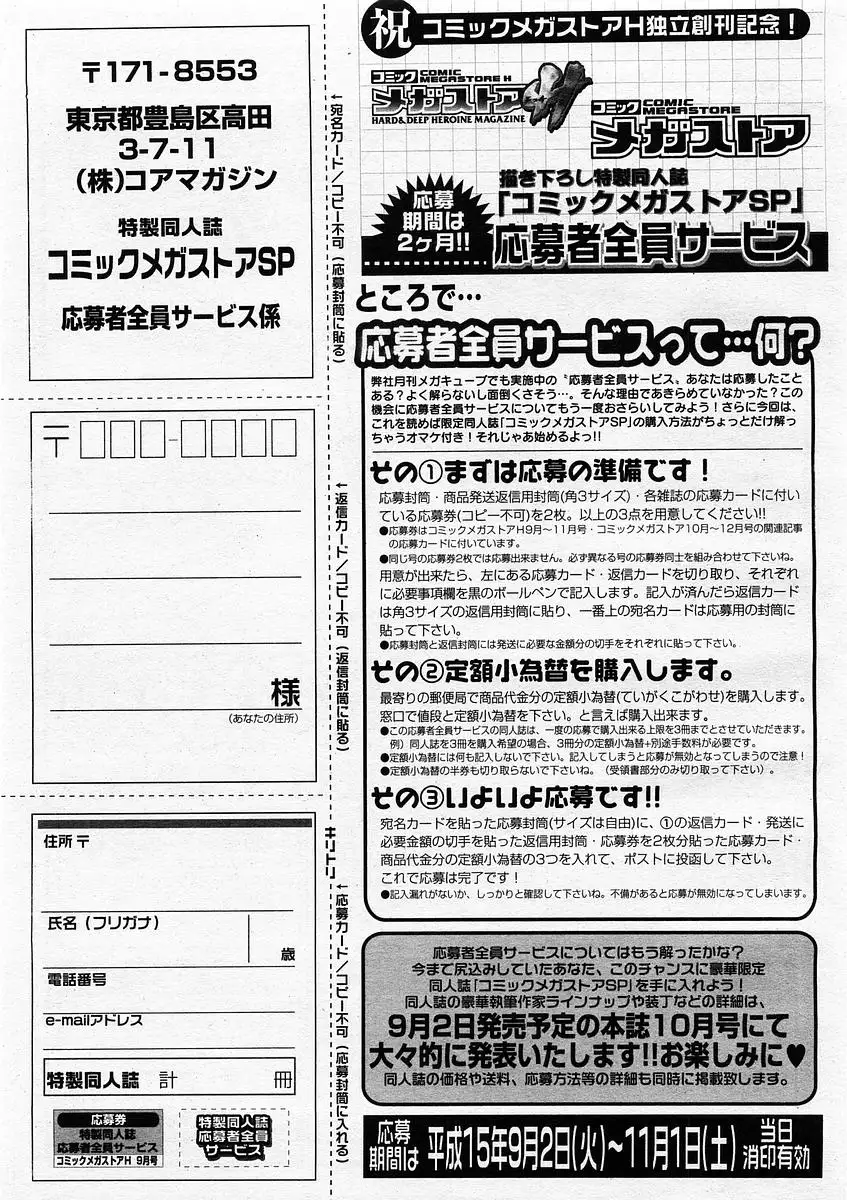 祝 コミックメガストアH独立創刊記念！
コミック COMIC MEGASTORE H
メガストアH
HARD&DEEP HEROINE MAGAZINE
コミック COMIC MEGASTORE
メガストア
応募
期間は
2ヶ月!!
描き下ろし特製同人誌
「コミックメガストアSP」
応募者全員サービス
ところで…
応募者全員サービスって…何？
弊社月刊メガキューブでも実施中の〝応募者全員サービス〟あなたは応募したこと
ある？よく解らないし面倒くさそう…。そんな理由であきらめていなかった？この
機会に応募者全員サービスについてもう一度おさらいしてみよう！さらに今回は、
これを読めば限定同人誌「コミックメガストアSP」の購入方法がちょっとだけ解っ
ちゃうオマケ付き！それじゃあ始めるよっ!!
その①まずは応募の準備です！
応募封筒・商品発送返信用封筒(角3サイズ)・各雑誌の応募カードに付い
ている応募券(コピー不可)を2枚。以上の3点を用意してください!!
●応募券はコミックメガストアH9月〜11月号・コミックメガストア10月〜12月号の関連記事
の応募カードに付いています。
●同じ号の応募券2枚では応募出来ません。必ず異なる号の応募券同士を組み合わせて下さいね。
用意が出来たら、左にある応募カード・返信カードを切り取り、それぞれ
に必要事項欄を黒のボールペンで記入します。記入が済んだら返信カード
は角3サイズの返信用封筒に貼り、一番上の宛名カードは応募用の封筒に
貼って下さい。
●応募封筒と返信封筒には発送に必要な金額分の切手をそれぞれに貼って下さい。
その②定額小為替を購入します。
最寄りの郵便局で商品代金分の定額小為替(ていがくこがわせ)を購入します。
窓口で値段と定額小為替を下さい。と言えば購入出来ます。
●この応募者全員サービスの同人誌は、一度の応募で購入出来る上限を3冊までとさせていただきます。
例）同人誌を3冊を購入希望の場合、3冊分の定額小為替+別途手数料が必要です。
●定額小為替には何も記入しない下さい。記入してしまうと応募が無効となってしまうので注意！
●定額小為替の半券も切り取らないで下さいね。（受領書部分のみ切り取って下さい）。
その③いよいよ応募です!!
宛名カードを貼った応募封筒(サイズは自由)に、①の返信カード・発送に
必要金額の切手を貼った返信用封筒・応募券を2枚分貼った応募カード・
商品代金分の定額小為替の3つを入れて、ポストに投函して下さい。
これで応募は完了です！
●記入漏れがないか、しっかりと確認して下さいね。不備があると応募が無効になってしまいます。
応募者全員サービスについてはもう解ったかな？
今まで尻込みしていたあなた、このチャンスに豪華限定
同人誌「コミックメガストアSP」を手に入れよう！
同人誌の豪華執筆作家ラインナップや装丁などの詳細は、
9月2日発売予定の本誌10月号にて
大々的に発表いたします!!お楽しみに♥
同人誌の価格や送料、応募方法等の詳細も同時に掲載致します。
応募
期間は
平成15年9月2日(火)〜11月1日(土)
当日
消印有効
〒171-8553
東京都豊島区高田
3-7-11
(株)コアマガジン
特製同人誌
コミックメガストアSP
応募者全員サービス係
←宛名カード／コピー不可（応募封筒に貼る）
〒
様
(あなたの住所)
←返信カード／コピー不可（返信封筒に貼る）
キリトリ
住所 〒
氏名（フリガナ）
歳
電話番号
e-mailアドレス
特製同人誌 計 冊
応募券
特製同人誌
応募者全員サービス
コミックメガストアH 9月号
特製同人誌
応募者全員
サービス
←応募カード／コピー不可（応募封筒に入れる）